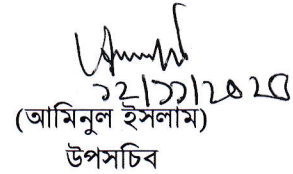 ১২/১১/২০২০
(আমিনুল ইসলাম)
উপসচিব